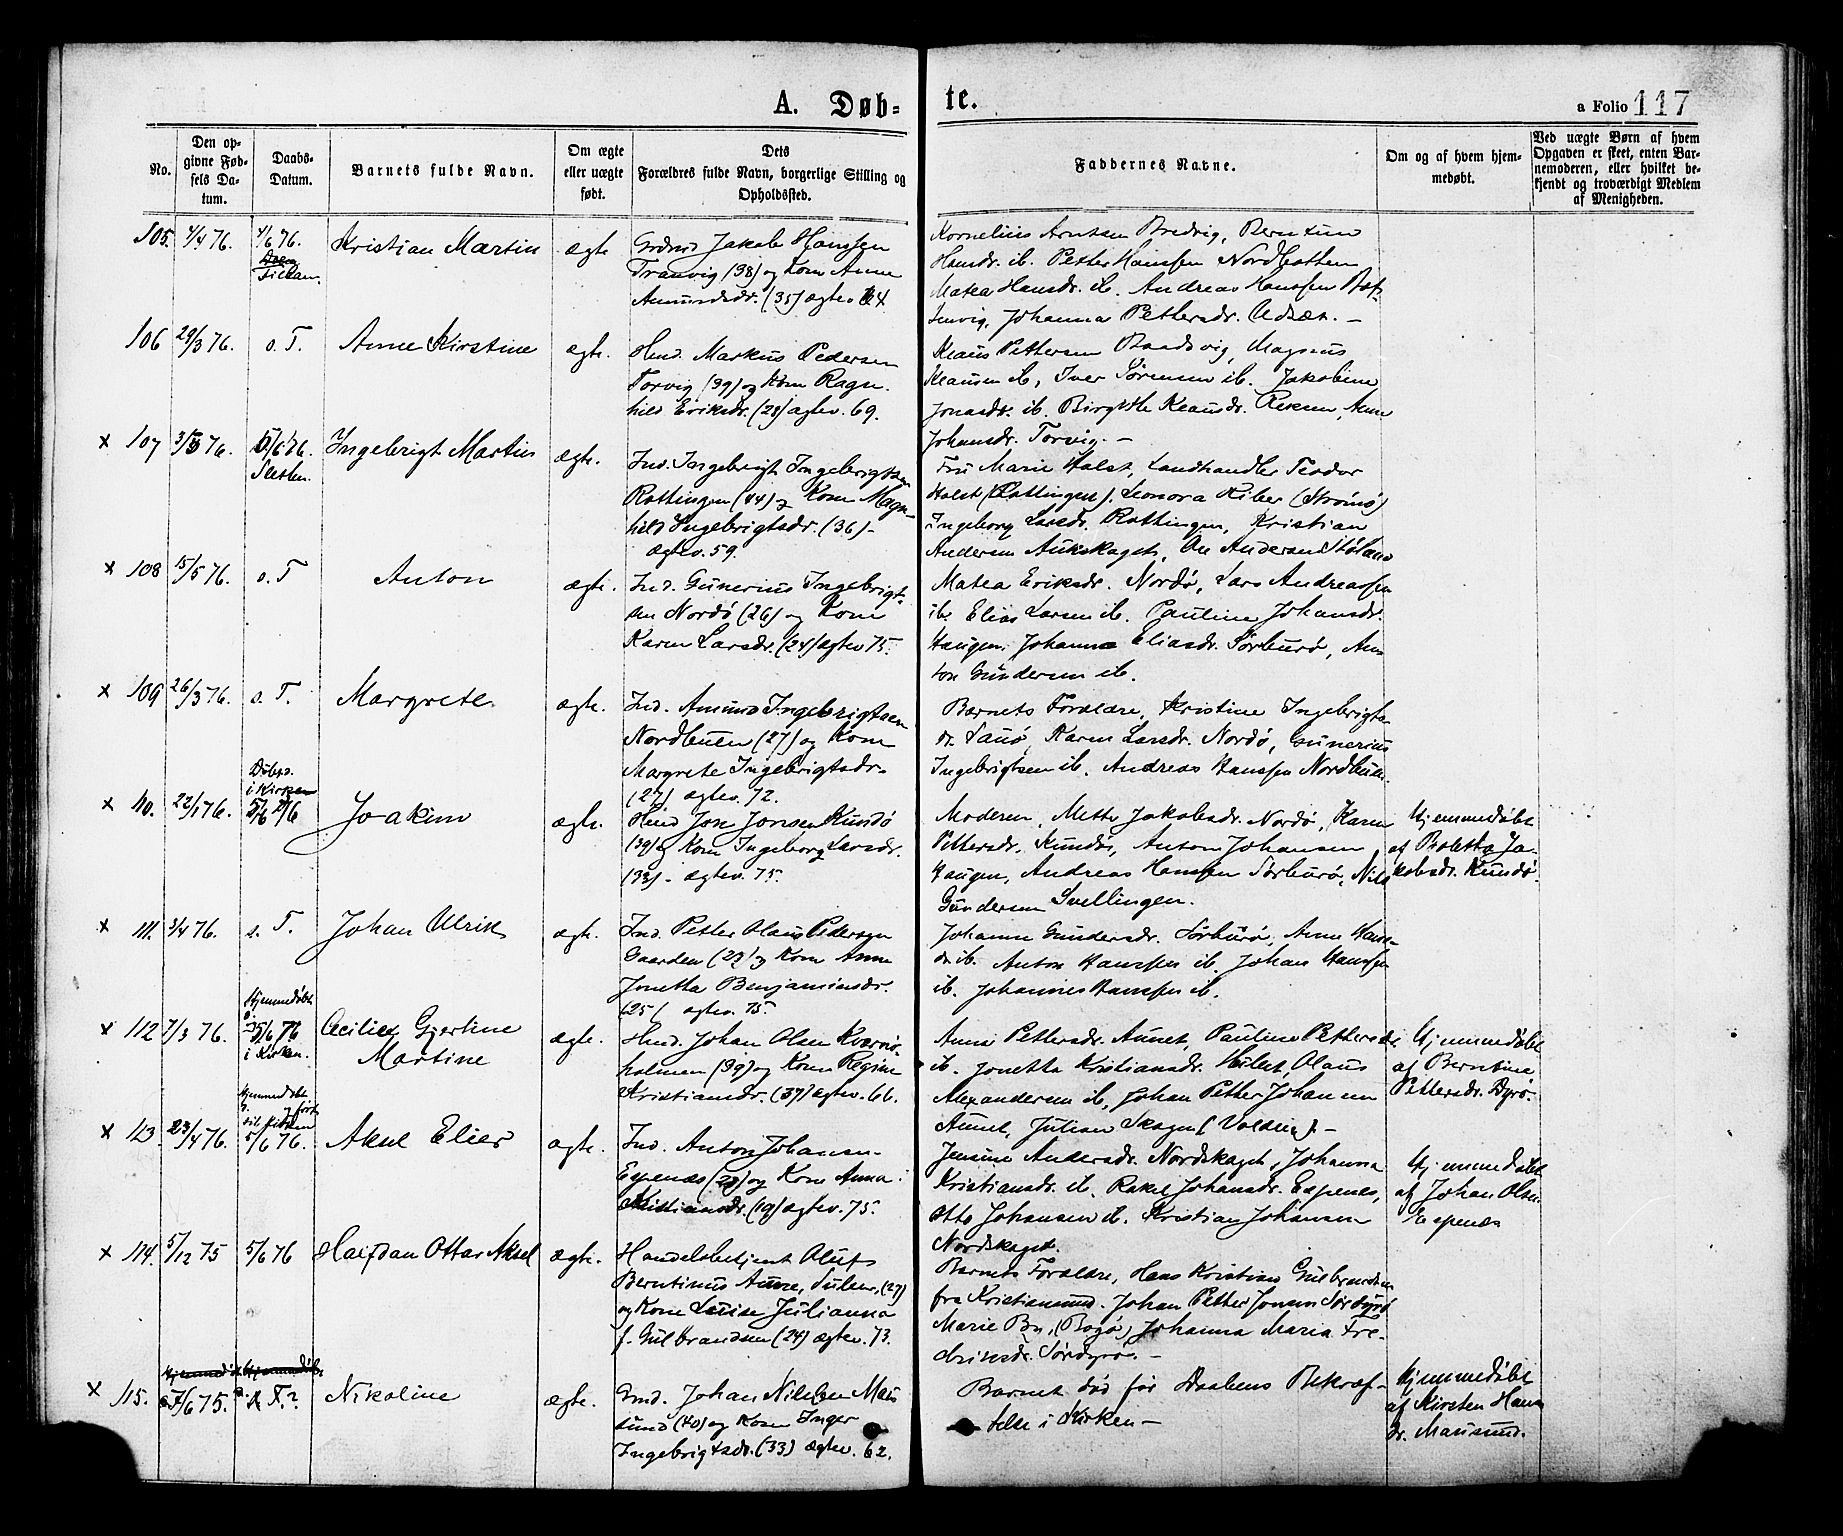 A. Døb-
te.
a Folio 117
No.
Den op-
givne Fød-
sels Da-
tum.
Daabs-
Datum.
Barnets fulde Navn.
Om ægte
eller uægte
født.
Dets
Forældres fulde Navn, borgerlige Stilling og
Opholdssted.
Faddernes Navne.
Om og af hvem hjem-
medøbt.
Ved uægte Børn af hvem
Opgaven er skeet, enten Bar-
nemoderen, eller hvilket be-
kjendt og troværdigt Medlem
af Menigheden.
105. 4/6 76. Kristian Martin ægte
Jakob Hanssen
Tranvig (38) og Kone Anne
Amundsdr. (35) ægtev.
Kornelius Arntsen Bredvig, Berntine
Hansdr. ib. Petter Hanssen Nordbotten
Matea Hansdr. ib. Andreas Hanssen
Johanna Pettersdr. Udsæt. —
106 29/3 76. s. T. Anne Kirstine ægte.
Hmd. Markus Pedersen
Torvig (39) og Kone Ragn-
hild Eriksdr. (28) ægtev. 69.
Klaus Pettersen Magnus
Klausen ib, Iver Sørensen ib. Jakobine
Jonasdr. ib. Birgitte Klausdr. Reksen, Anne
Johansdr. Torvig. —
× 107 5/6 76. Sletten. Ingebrigt Martin ægte.
Ind. Ingebrigt Ingebrigtsen
Rottingen (44) og Kone Magn-
hild Ingebrigtsdr. (36) -
ægtev. 59.
Fru Marie Holst, Landhandler Teodor
Holst (Rottingen). Leonora Kiber (Strømø)
Ingeborg Larsdr. Rottingen, Kristian
Andersen Aukskaget, Ole Andersen
× 108 15/5 76. s. T Anton ægte.
Ind. Gunerius Ingebrigt-
sen Nordø (26) og Kone
Karen Larsdr. (24) ægtev 75.
Matea Eriksdr. Nordø, Lars Andreassen
ib. Elias Larsen ib. Pauline Johansdr.
Haugen. Johanna Eliasdr. Sørburø, An-
ton Gundersen ib.
× 109 26/3 76. s. T. Margrete ægte.
Ind. Amund Ingebrigtsen
Nordbuen (27) og Kone
Margrete Ingebrigtsdr.
(27) ægtev. 72.
Barnets Forældre, Kristine Ingebrigts-
dr. Karen Larsdr. Nordø, Gunerius
Ingebrigtsen ib. Andreas Hanssen Nordbuen.
× 110. 22/1 76. Døbt. i Kirken 5/6 76 Joakim ægte.
Hmd Jon Jonsen Kunnø
(39) og Kone Ingeborg Larsdr.
(33) - ægtev. 75.
Moderen, Mette Jakobsdr. Nordø, Karen
Pettersdr. Kunnø, Anton Johansen
Haugen, Andreas Hanssen Sørburø, Nils
Gundersen Svellingen.
Hjemmedøbt
af Ja-
kobsdr. Kunnø.
× 111. 3/4 76. s. T. Johan Ulrik ægte.
Ind. Petter Olaus Pedersen
Gaarden (29) og Kone Anne
Jonetta Benjaminsdr.
(25) ægtev. 75.
Johanna Gundersdr. Sørburø, Anne Hans-
dr. ib. Anton Hanssen ib. Johan Hanssen
ib. Johannes Hanssen ib.
× 112 7/3 76. Hjemmedøbt 5/6 76 i Kirken. Cecilie Gjertine
Martine ægte.
Hmd. Johan Olsen Kvernø-
holmen (39) og Kone Regine
Kristiansdr. (37) ægtev. 66.
Anne Pettersdr. Aunet, Pauline Pettersdr
ib. Jonetta Kristiansdr. Olaus
Alexandersen ib, Johan Petter Johansen
Aunet, Julian Skagen (Valdsien). —
Hjemmedøbt
af Berntine
Pettersdr. Dyrø.
× 113. 23/4 76. Hjemmedøbt. til Kirken 5/6 76. Aksel Elier ægte.
Ind. Anton Johansen
Espenæs (23) og Kone Anna
Kristiansdr. (19) ægtev. 75.
Jensine Andersdr. Nordskaget, Johanna
Kristiansdr. ib. Rakel Johansdr. Espenes,
Otto Johansen ib. Kristian Johansen
Nordskaget.
Hjemmedøbt
af Johan Olsen
Espenæs
× 114. 5/12 75 5/6 76 Halfdan Ottar Aksel ægte.
Handelsbetjent Oluf
Berntinus Aune, Sulen, (27)
og Kone Louise Julianna
f. Gulbrandsen (24) ægtev. 73.
Barnets Forældre, Hans Kristian Gulbrandsen
fra Kristiansund. Johan Petter Jonsen Sørdyrø
Marie Bn, (Bogø) Johanna Maria Fre-
driksdr. Sørdyrø. —
× 115. 7/6 75. Nikoline ægte.
Gmd. Johan Nilssen Mau-
sund (40) og Kone Inger
Ingebrigtsdr. (33) ægtev. 62.
Barnet død før Daabens Bekræf-
telse i Kirken —
Hjemmedøbt
af Kirsten Hans-
dr. Mausund.